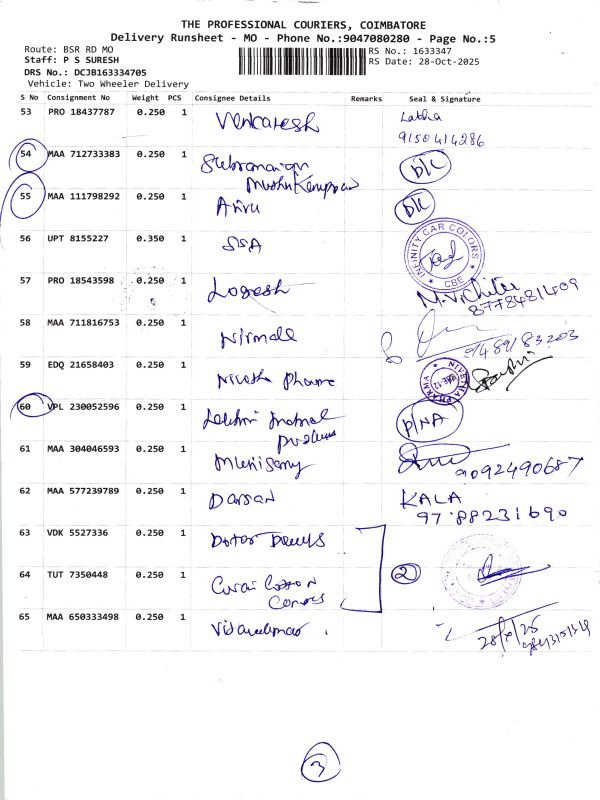 THE PROFESSIONAL COURIERS, COIMBATORE
Delivery Runsheet - MO - Phone No.:9047080280 - Page No.:5
Route: BSR RD MO
Staff: P S SURESH
DRS No.: DCJB163334705
Vehicle: Two Wheeler Delivery
RS No.: 1633347
RS Date: 28-Oct-2025
S No Consignment No Weight PCS Consignee Details Remarks Seal & Signature
53 PRO 18437787 0.250 1 Venkatesh Latha
9150414286
54 MAA 712733383 0.250 1 D/C
55 MAA 111798292 0.250 1 D/C
56 UPT 8155227 0.350 1 SSA INFINITY CAR COLORS CBE
57 PRO 18543598 0.250 1 Logesh
8778481409
58 MAA 711816753 0.250 1 Nirmala
59 EDQ 21658403 0.250 1 NIVETHA PHARMA
60 VPL 230052596 0.250 1 P/NA
61 MAA 304046593 0.250 1 9092490687
62 MAA 577239789 0.250 1 Darsan KALA
97 88231690
63 VDK 5527336 0.250 1
64 TUT 7350448 0.250 1 2
65 MAA 650333498 0.250 1
3